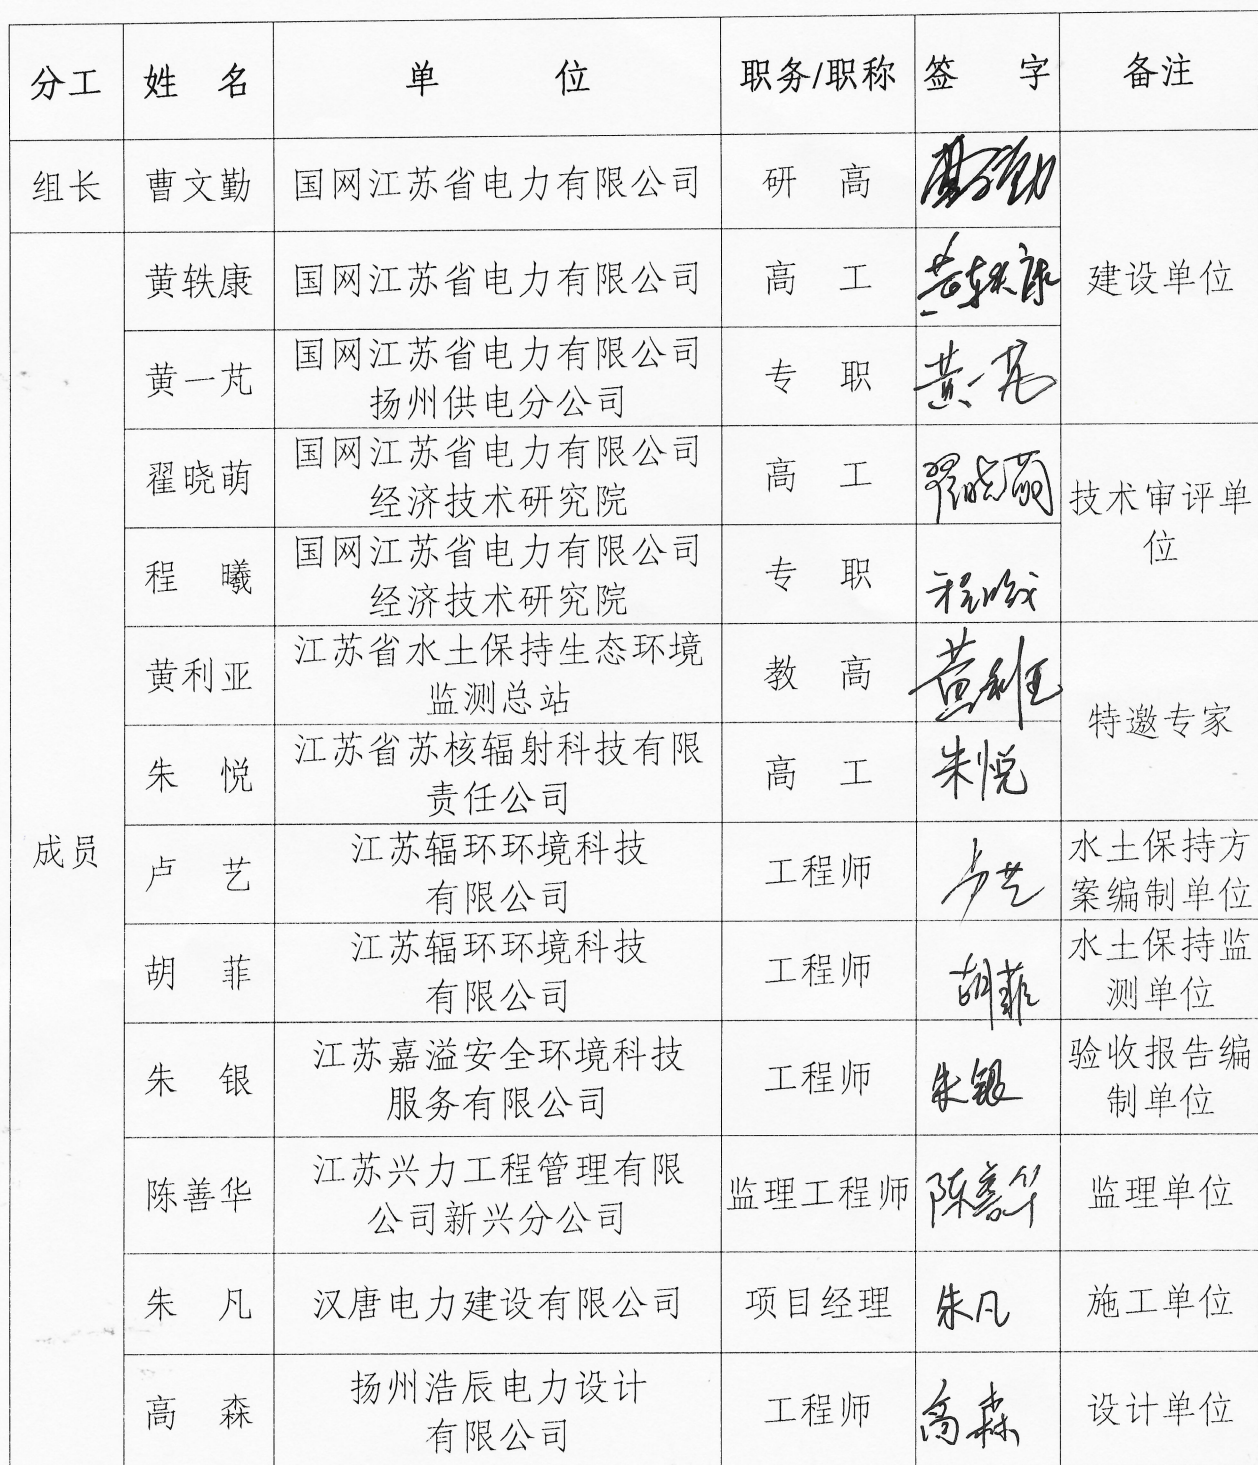 分工 姓 名 单 位 职务/职称 签 字 备注
组长 曹文勤 国网江苏省电力有限公司 研 高 曹文勤
黄轶康 国网江苏省电力有限公司 高 工 黄轶康 建设单位
黄一芃 国网江苏省电力有限公司
扬州供电分公司 专 职 黄一芃
翟晓萌 国网江苏省电力有限公司
经济技术研究院 高 工 翟晓萌 技术审评单
位
程 曦 国网江苏省电力有限公司
经济技术研究院 专 职 程曦
黄利亚 江苏省水土保持生态环境
监测总站 教 高 黄利亚 特邀专家
朱 悦 江苏省苏核辐射科技有限
责任公司 高 工 朱悦
成员 卢 艺 江苏辐环环境科技
有限公司 工程师 卢艺 水土保持方
案编制单位
胡 菲 江苏辐环环境科技
有限公司 工程师 胡菲 水土保持监
测单位
朱 银 江苏嘉溢安全环境科技
服务有限公司 工程师 朱银 验收报告编
制单位
陈善华 江苏兴力工程管理有限
公司新兴分公司 监理工程师 陈善华 监理单位
朱 凡 汉唐电力建设有限公司 项目经理 朱凡 施工单位
高 森 扬州浩辰电力设计
有限公司 工程师 高森 设计单位